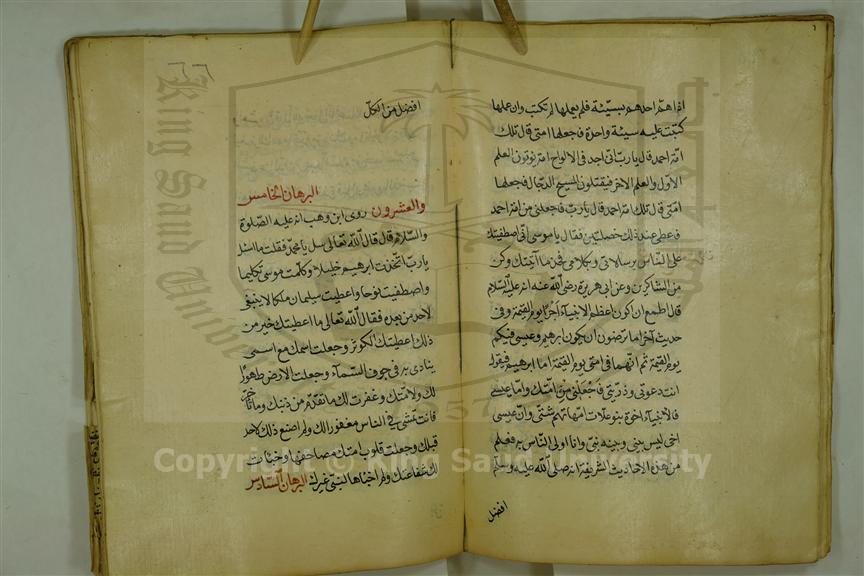 اذا هم احدهم بسيئة فلم يعملها لم تكتب وان عملها
كتبت عليه سيئة واحدة فاجعلها امتى قال تلك
امة احمد قال يا رب انى اجد فى الالواح امة يؤتون العلم
الاول والعلم الاخر فيقتلون المسيح الدجال فاجعلها
امتى قال تلك امة احمد قال يا رب فاجعلنى من امة احمد
فاعطى عند ذلك خصلتين فقال يا موسى انى اصطفيتك
على الناس برسالاتى وبكلامى فخذ ما اتيتك وكن
من الشاكرين وعن ابى هريرة رضى الله عنه انه عليه السلام
قال اطمع ان اكون اعظم الانبياء اجرا يوم القيمة وفى
حديث آخر اما ترضون ان يكون ابرهيم وعيسى فيكم
يوم القيمة ثم انهما فى امتى يوم القيمة اما ابرهيم فيقول
انت دعوتى وذريتى فاجعلنى من امتك واما عيسى
فالانبياء اخوة بنو علات امهاتهم شتى وان عيسى
اخى ليس بينى وبينه نبى وانا اولى الناس به فعلم
من هذه الاحاديث الشريفة انه صلى الله عليه وسلم
افضل
افضل من الكل
البرهان الخامس
والعشرون روى ابن وهب انه عليه الصلوة
والسلام قال قال الله تعالى سل يا محمد فقلت ما اسئل
يا رب اتخذت ابرهيم خليلا وكلمت موسى تكليما
واصطفيت نوحا واعطيت سليمان ملكا لا ينبغى
لاحد من بعده فقال الله تعالى ما اعطيتك خير من
ذلك اعطيتك الكوثر وجعلت اسمك مع اسمى
ينادى به فى جوف السماء وجعلت الارض طهورا
لك ولامتك وغفرت لك ما تقدم من ذنبك وما تاخر
فانت تمشى فى الناس مغفورا لك ولم اصنع ذلك لاحد
قبلك وجعلت قلوب امتك مصاحفها وخبأت
لك شفاعتك ولم اخبأها لنبى غيرك البرهان السادس
King Saud University
Copyright © King Saud University
1957